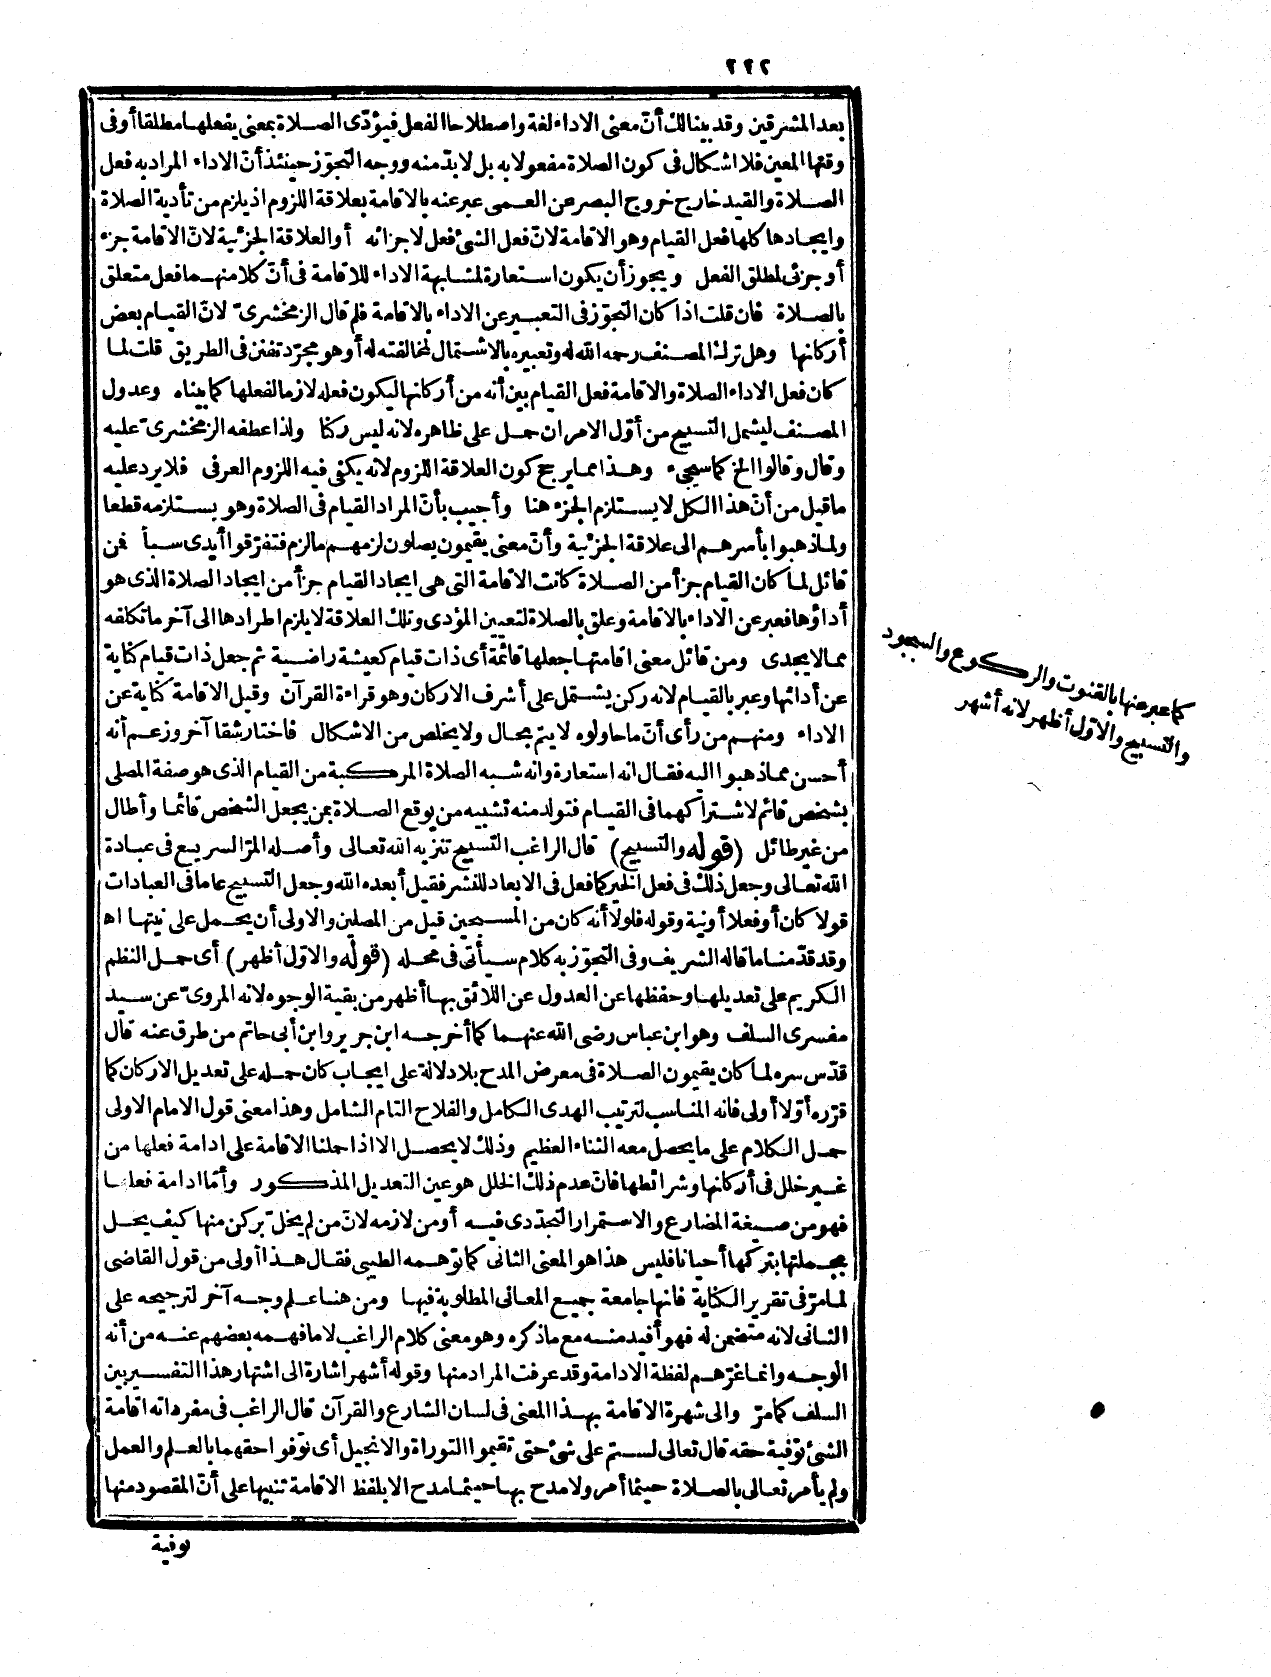 ٢٢٢
بعد المشرقين وقد بينا لك أنّ معنى الاداء لغة واصطلاحا الفعل فيؤدّى الصلاة بمعنى يفعلها مطلقا أو فى
وقتها المعين فلا اشكال فى كون الصلاة مفعولا به بل لا بدّ منه ووجه التجوّز حينئذ أنّ الاداء المراد به فعل
الصلاة والقيد خارج خروج البصر عن العمى عبر عنه بالاقامة بعلاقة اللزوم اذ يلزم من تأدية الصلاة
وايجادها كلها فعل القيام وهو الاقامة لانّ فعل الشئ فعل لاجزائه أو العلاقة الجزئية لانّ الاقامة جزء
أو جزئى لمطلق الفعل ويجوز أن يكون استعارة لمشابهة الاداء للاقامة فى أنّ كلا منهما فعل متعلق
بالصلاة فان قلت اذا كان التجوّز فى التعبير عن الاداء بالاقامة فلم قال الزمخشرىّ لانّ القيام بعض
أركانها وهل ترك المصنف رحمه الله له وتعبيره بالاشتمال لمخالفته له أو هو مجرّد تفنن فى الطريق قلت لما
كان فعل الاداء الصلاة والاقامة فعل القيام بين أنه من أركانها ليكون فعله لازما لفعلها كما بيناه وعدول
المصنف ليشمل التسبيح من أوّل الامر ان حمل على ظاهره لانه ليس ركنا ولذا عطفه الزمخشرىّ عليه
وقال وقالوا الخ كما سيجىء وهذا مما يرجح كون العلاقة اللزوم لانه يكفى فيه اللزوم العرفى فلا يرد عليه
ما قيل من أنّ هذا الكل لا يستلزم الجزء هنا وأجيب بأنّ المراد القيام فى الصلاة وهو يستلزمه قطعا
ولما ذهبوا بأسرهم الى علاقة الجزئية وأنّ معنى يقيمون يصلون لزمهم ما لزم فتفرّقوا أيدى سبأ فمن
قائل لما كان القيام جزأ من الصلاة كانت الاقامة التى هى ايجاد القيام جزأ من ايجاد الصلاة الذى هو
أداؤها فعبر عن الاداء بالاقامة وعلق بالصلاة لتعيين المؤدى وتلك العلاقة لا يلزم اطرادها الى آخر ما تكلفه
مما لا يجدى ومن قائل معنى اقامتها جعلها قائمة أى ذات قيام كعيشة راضية ثم جعل ذات قيام كناية
عن أدائها وعبر بالقيام لانه ركن يشتمل على أشرف الاركان وهو قراءة القرآن وقيل الاقامة كناية عن
الاداء ومنهم من رأى أنّ ما حاولوه لا يتم بحال ولا يخلص من الاشكال فاختار شقا آخر وزعم أنه
أحسن مما ذهبوا اليه فقال انه استعارة وانه شبه الصلاة المركبة من القيام الذى هو صفة المصلى
بشخص قائم لاشتراكهما فى القيام فتولد منه تشبيه من يوقع الصلاة بمن يجعل الشخص قائما وأطال
من غير طائل (قوله والتسبيح) قال الراغب التسبيح تنزيه الله تعالى وأصله المرّ السريع فى عبادة
الله تعالى وجعل ذلك فى فعل الخير كما فعل فى الابعاد للشر فقيل أبعده الله وجعل التسبيح عاما فى العبادات
قولا كان أو فعلا أو نية وقوله فلولا أنه كان من المسبحين قيل من المصلين والاولى أن يحمل على نيتها اه
وقد قدّمنا ما قاله الشريف وفى التجوّز به كلام سيأتى فى محله (قوله والاوّل أظهر) أى حمل النظم
الكريم على تعديلها وحفظها عن العدول عن اللائق بها أظهر من بقية الوجوه لانه المروىّ عن سيد
مفسرى السلف وهو ابن عباس رضى الله عنهما كما أخرجه ابن جرير وابن أبى حاتم من طرق عنه قال
قدّس سره لما كان يقيمون الصلاة فى معرض المدح بلا دلالة على ايجاب كان حمله على تعديل الاركان كما
قرّره أوّلا أولى فانه المناسب لترتيب الهدى الكامل والفلاح التام الشامل وهذا معنى قول الامام الاولى
حمل الكلام على ما يحصل معه الثناء العظيم وذلك لا يحصل الا اذا حملنا الاقامة على ادامة فعلها من
غير خلل فى أركانها وشرائطها فانّ عدم ذلك الخلل هو عين التعديل المذكور وأمّا ادامة فعلها
فهو من صيغة المضارع والاستمرار التجدّدى فيه أو من لازمه لانّ من لم يخلّ بركن منها كيف يخل
بجملتها بتركها أحيانا فليس هذا هو المعنى الثانى كما توهمه الطيبى فقال هذا أولى من قول القاضى
لما مرّ فى تقرير الكناية فانها جامعة جميع المعانى المطلوبة فيها ومن هنا علم وجه آخر لترجيحه على
الثانى لانه متضمن له فهو أفيد منه مع ما ذكره وهو معنى كلام الراغب لا ما فهمه بعضهم عنه من أنه
الوجه وانما غرّهم لفظة الادامة وقد عرفت المراد منها وقوله أشهر اشارة الى اشتهار هذا التفسير بين
السلف كما مرّ والى شهرة الاقامة بهذا المعنى فى لسان الشارع والقرآن قال الراغب فى مفرداته اقامة
الشئ توفية حقه قال تعالى لستم على شئ حتى تقيموا التوراة والانجيل أى توفوا حقهما بالعلم والعمل
ولم يأمر تعالى بالصلاة حيثما أمر ولا مدح بها حيثما مدح الا بلفظ الاقامة تنبيها على أنّ المقصود منها
توفية
كما عبر عنها بالقنوت والركوع والسجود
والتسبيح والاوّل أظهر لانه أشهر